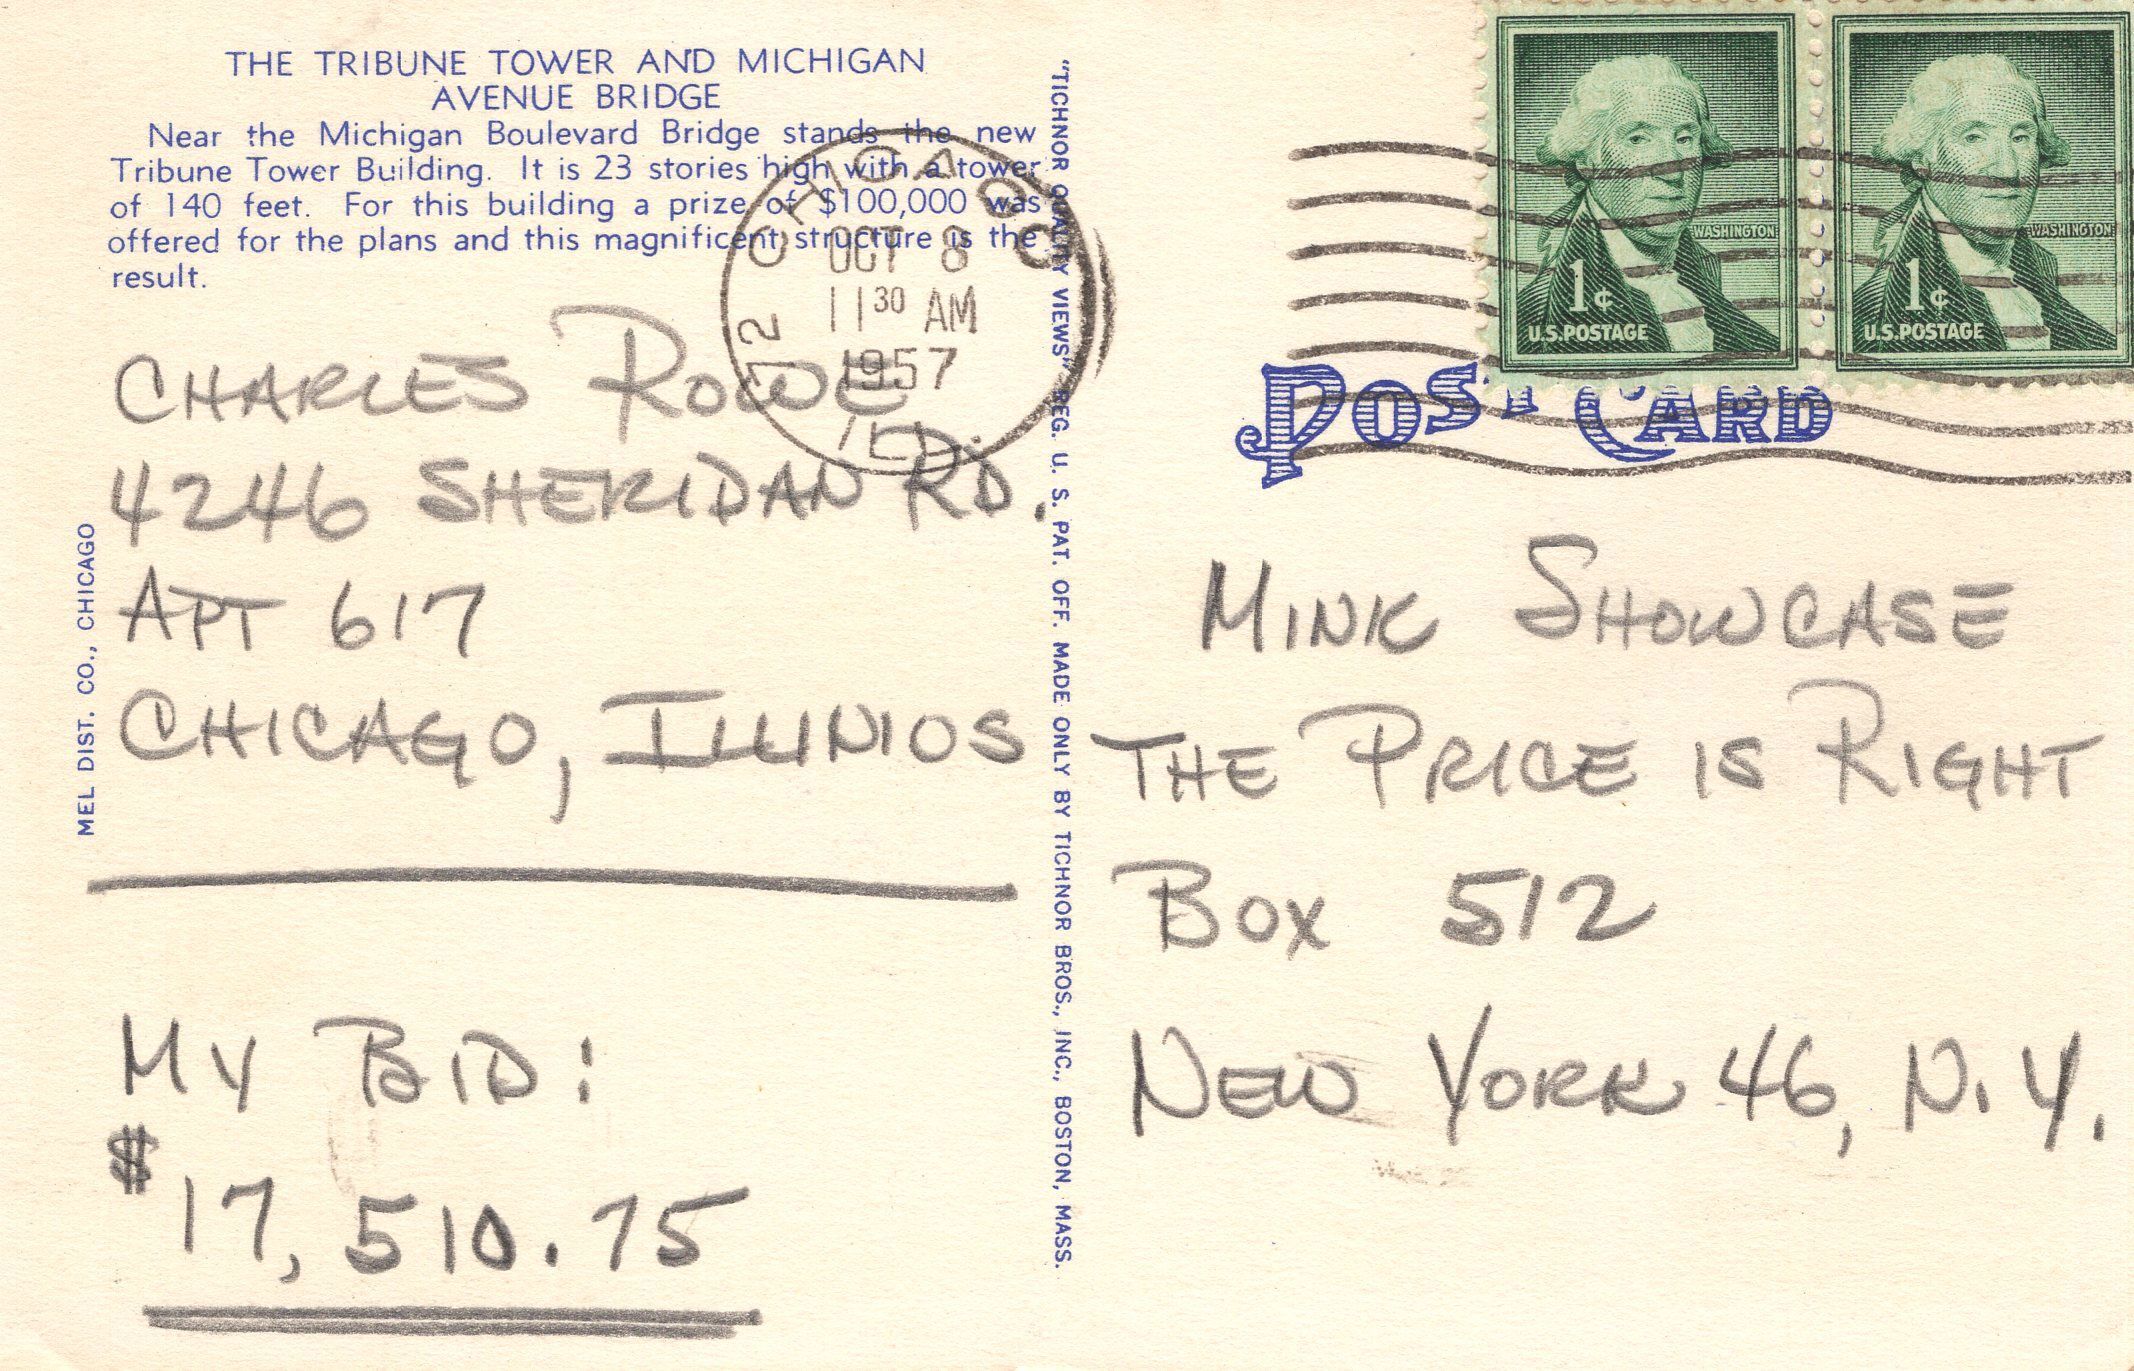 THE TRIBUNE TOWER AND MICHIGAN
AVENUE BRIDGE
Near the Michigan Boulevard Bridge stands the new
Tribune Tower Building. It is 23 stories high with a tower
of 140 feet. For this building a prize of $100,000 was
offered for the plans and this magnificent structure is the
result.
CHICAGO
OCT 8
11 30 AM
1957
ILL.
CHARLES ROWE
4246 SHERIDAN RD.
APT 617
CHICAGO, ILLINIOS
MY BID:
$17,510.75
MEL DIST. CO., CHICAGO
"TICHNOR QUALITY VIEWS" REG. U. S. PAT. OFF. MADE ONLY BY TICHNOR BROS., INC., BOSTON, MASS.
WASHINGTON
1¢
U.S. POSTAGE
WASHINGTON
1¢
U.S. POSTAGE
POST CARD
MINK SHOWCASE
THE PRICE IS RIGHT
BOX 512
NEW YORK 46, N.Y.